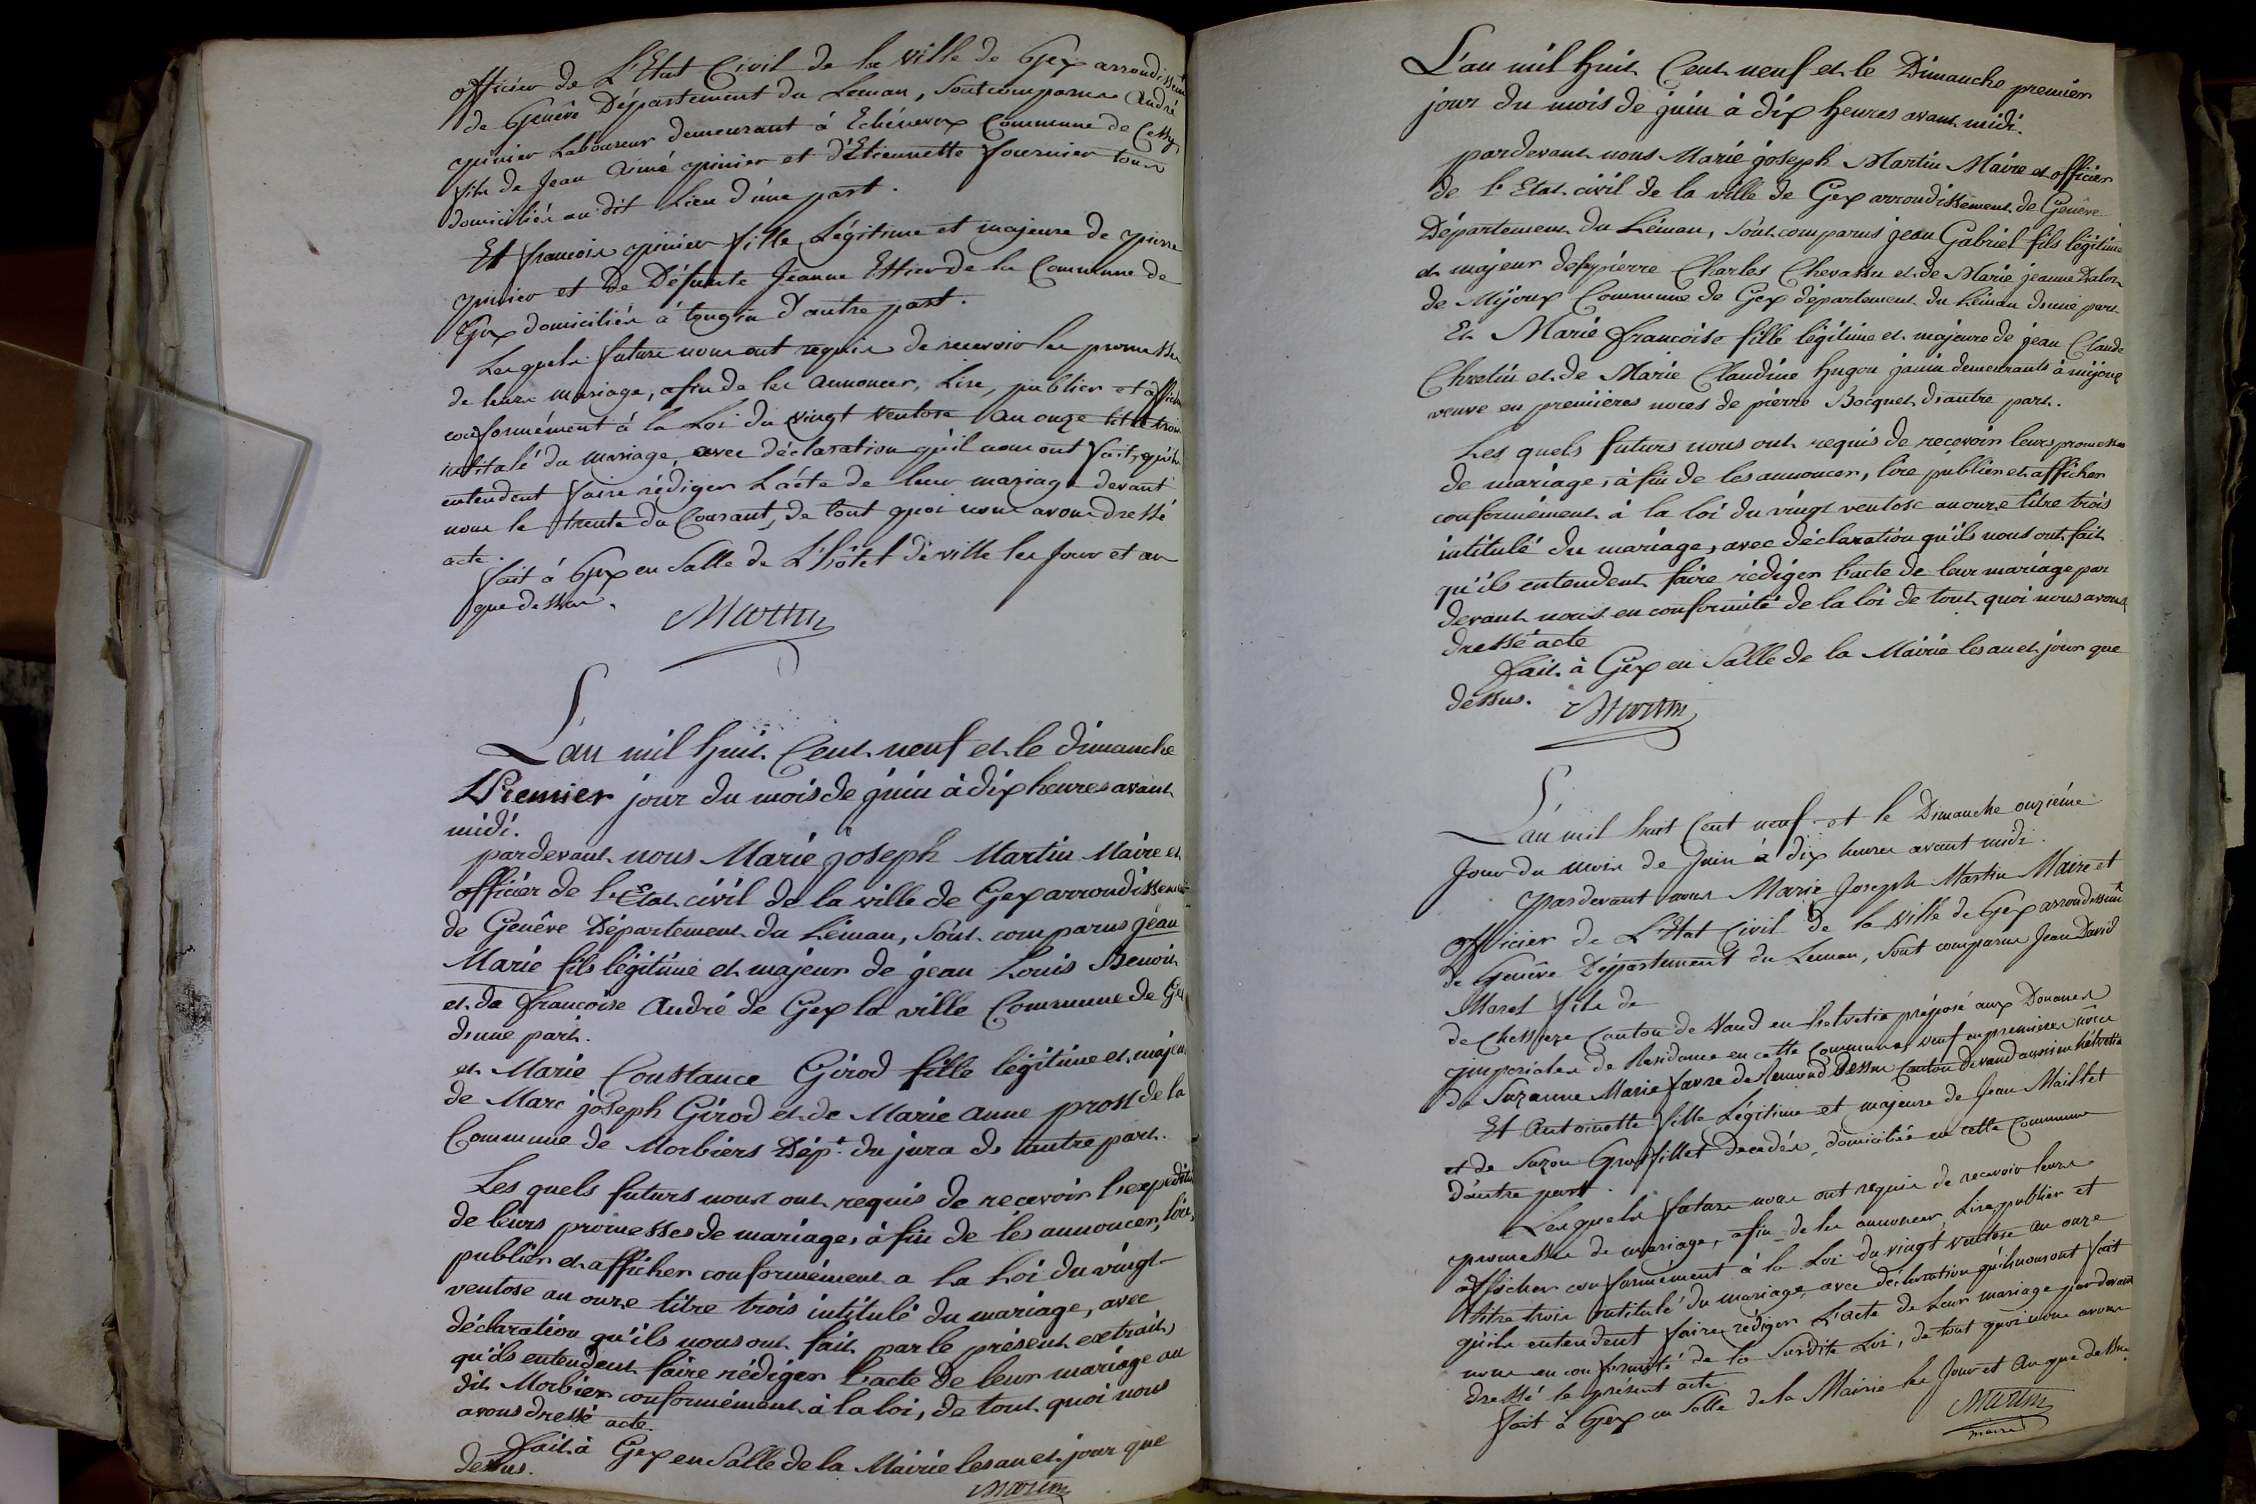 officier de L'Etat Civil de la ville de Gex arrondissemt
de Genêve Département du Leman, sont comparus André
pinier Laboureur demeurant à Echenevex Commune de Cessy,
fils de Jean Aimé pinier et d'Etiennette fournier tous
domiciliés au dit Lieu d'une part.
Et françoise pinier fille Légitime et majeure de pierre
pinier et de Défunte Jeanne Effier de la Commune de
Gex domiciliés à tougin d'autre part.
Lesquels futurs nous ont requis de recevoir les promesses
de leurs mariage, afin de les annoncer, Lire, publier et afficher
conformément à la Loi du vingt ventose an onze titre trois
intitulé du mariage avec déclaration qu'il nous ont fait, qu'ils
entendent faire rédiger L'acte de leur mariage devant
nous le trente du Courant, de tout quoi nous avons dressé
acte.
fait à Gex en Salle de L'hôtel de ville les Jour et an
que dessus.
Martin
L'an mil huit Cent neuf et le dimanche
Premier jour du mois de juin à dix heures avant
midi.
pardevant nous Marie joseph Martin Maire et
officier de l'Etat civil de la ville de Gex arrondissement
de Genêve Département du Léman, sont comparus jean
Marie fils légitime et majeur de jean Louis Benoit
et de françoise André de Gex la ville Commune de Gex
d'une part.
et Marie Constance Girod fille légitime et majeure
de Marc joseph Girod et de Marie anne prost de la
Commune de Morbiers Dépt. du jura de autre part.
Les quels futurs nous ont requis de recevoir l'expedition
de leurs promesses de mariage, à fin de les annoncer, lire,
publier et afficher conformément a la Loi du vingt
ventose an onze titre trois intitulé du mariage, avec
déclaration qu'ils nous ont fait par le présent extrait,
qu'ils entendent faire rédiger l'acte de leur mariage au
dit Morbier conformément à la loi, de tout quoi nous
avons dressé acte
fait à Gex en Salle de la Mairie les an et jour que
dessus.
Martin
L'an mil huit Cent neuf et le Dimanche premier
jour du mois de juin à dix heures avant midi.
pardevant nous Marie joseph Martin Maire et officier
de l'Etat civil de la ville de Gex arrondissement de Genêve
Département du Léman, sont comparus jean Gabriel fils légitime
et majeur de fs pierre Charles Chevassu et de Marie jeanne Dalos
de Mijoux Commune de Gex département du Léman d'une part
Et Marie françoise fille légitime et majeure de jean Claude
Chretin et de Marie Claudine hugon janin demeurants à mijoux
veuve en premières noces de pierre Bocquet d'autre part.
Les quels futurs nous ont requis de recevoir leurs promesses
de mariage, à fin de les annoncer, lire publier et afficher
conformément à la loi du vingt ventose an onze titre trois
intitulé du mariage, avec déclaration qu'ils nous ont fait
qu'ils entendent faire rédiger l'acte de leur mariage par
devant nous en conformité de la loi de tout quoi nous avons
dressé acte
fait à Gex en Salle de la Mairie les an et jour que
dessus.
Martin
L'an mil huit Cent neuf et le Dimanche onzième
Jour du mois de Juin à dix heures avant midi.
pardevant nous Marie Joseph Martin Maire et
officier de L'Etat Civil de la ville de Gex arrondissemt
de Genêve Département du Leman, sont comparus Jean David
Maret fils de
de Canton de Vaud en helvetie préposé aux Douanes
imperiales de Residence en cette Commune, veuf en premieres noces
de Suzanne Marie favre de dessus Canton de vaud aussi en helvetie
Et Antoinette fille Légitime et majeure de Jean Maillet
et de Suzon Grosfillet Decedés, domiciliée en cette Commune
d'autre part.
Lesquels futurs nous ont requis de recevoir leurs
promesses de mariage, afin de les annoncer, Lire, publier et
afficher conformément à la Loi du vingt ventose an onze
titre trois intitulé du mariage, avec déclaration qu'ils nous ont fait
qu'ils entendent faire rédiger L'acte de Leur mariage par devant
nous en conformité de la Susdite Loi, de tout quoi nous avons
dressé le présent acte
fait à Gex en Salle de la Mairie les Jour et An que dessus.
Martin
maire